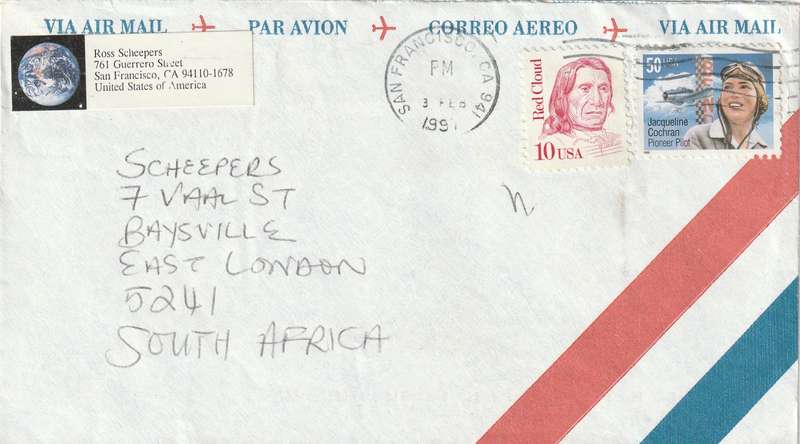 VIA AIR MAIL PAR AVION CORREO AEREO VIA AIR MAIL
Ross Scheepers
761 Guerrero Street
San Francisco, CA 94110-1678
United States of America
SAN FRANCISCO, CA 941
PM
3 FEB
1997
Red Cloud
10 USA
50 USA
Jacqueline
Cochran
Pioneer Pilot
SCHEEPERS
7 VAAL ST
BAYSVILLE
EAST LONDON
5241
SOUTH AFRICA